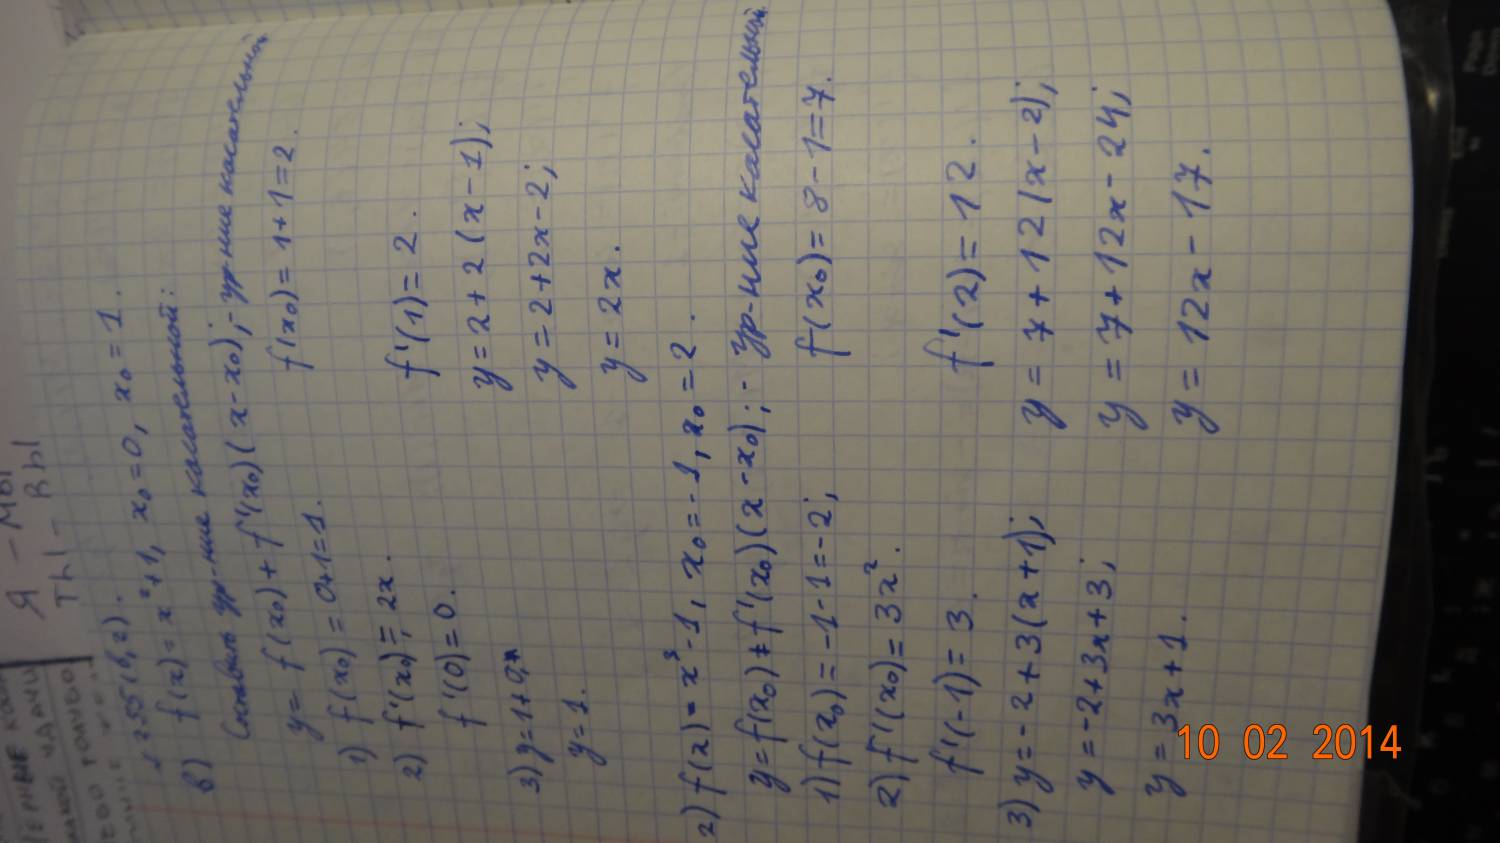 Я – МЫ
ТЫ – ВЫ
255 (в, г).
в) f(x) = x² + 1, x₀ = 0, x₀ = 1.
Составить ур-ние касательной:
y = f(x₀) + f'(x₀)(x - x₀); - ур-ние касательной
1) f(x₀) = 0+1=1. f(x₀) = 1+1=2.
2) f'(x₀) = 2x.
f'(0) = 0. f'(1) = 2.
3) y = 1 + 0; y = 2 + 2(x - 1);
y = 1. y = 2 + 2x - 2;
y = 2x.
г) f(x) = x³ - 1, x₀ = -1, x₀ = 2.
y = f(x₀) + f'(x₀)(x - x₀); - ур-ние касательной
1) f(x₀) = -1 - 1 = -2; f(x₀) = 8 - 1 = 7.
2) f'(x₀) = 3x².
f'(-1) = 3. f'(2) = 12.
3) y = -2 + 3(x + 1); y = 7 + 12(x - 2);
y = -2 + 3x + 3; y = 7 + 12x - 24;
y = 3x + 1. y = 12x - 17.
10 02 2014